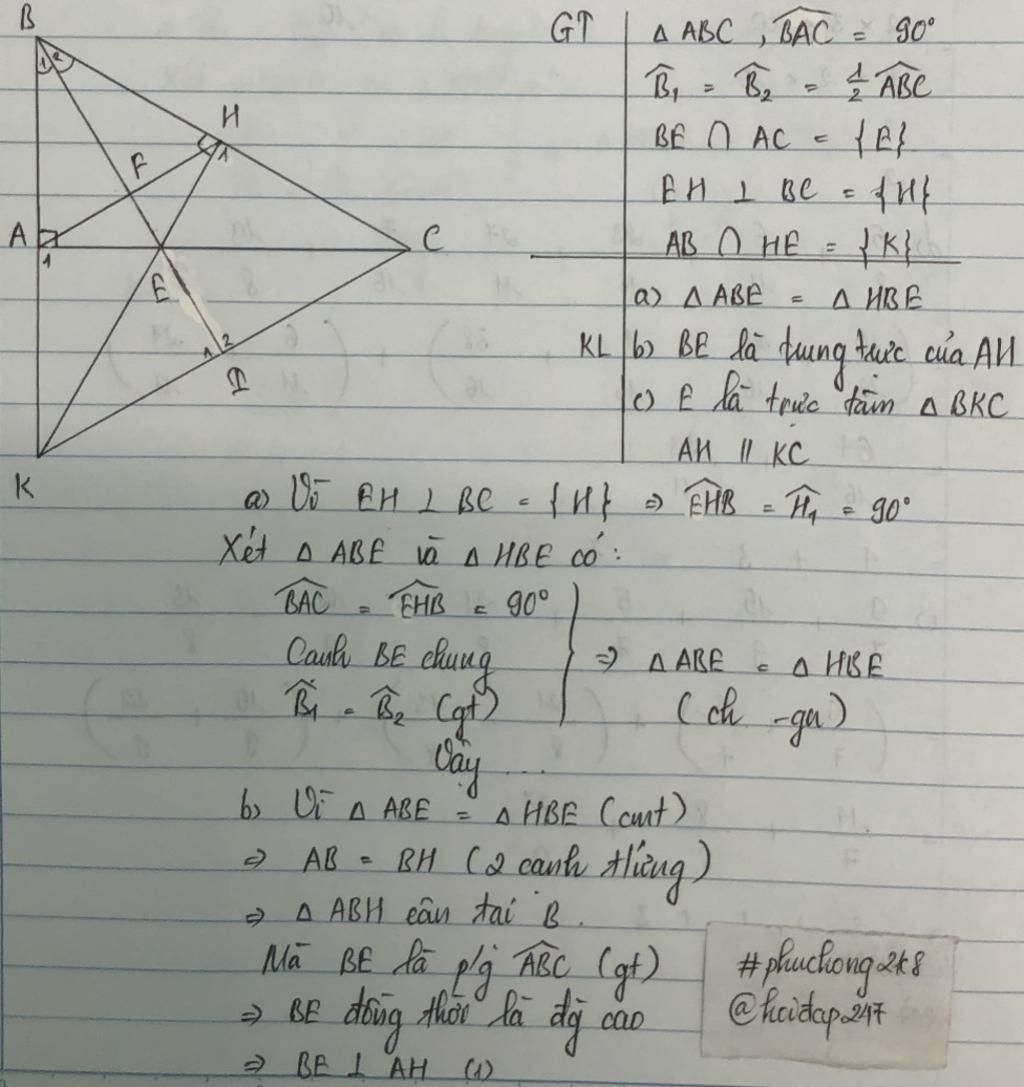 B
1 2
H
1
F
A
1
C
E
1 2
I
K
GT
Δ ABC , BAC = 90°
B₁ = B₂ = 1/2 ABC
BE ∩ AC = {E}
EH ⊥ BC = {H}
AB ∩ HE = {K}
a) Δ ABE = Δ HBE
KL b) BE là trung trực của AH
c) E là trực tâm Δ BKC
AH // KC
a) Vì EH ⊥ BC = {H} ⇒ EHB = H₁ = 90°
Xét Δ ABE và Δ HBE có:
BAC = EHB = 90°
Cạnh BE chung
B₁ = B₂ (gt)
⇒ Δ ABE = Δ HBE
(ch - gn)
Vậy ...
b) Vì Δ ABE = Δ HBE (cmt)
⇒ AB = BH (2 cạnh tứng)
⇒ Δ ABH cân tại B.
Mà BE là p/g ABC (gt)
⇒ BE đồng thời là đg cao
⇒ BE ⊥ AH (1)
#phuchong2k8
@hoidap247